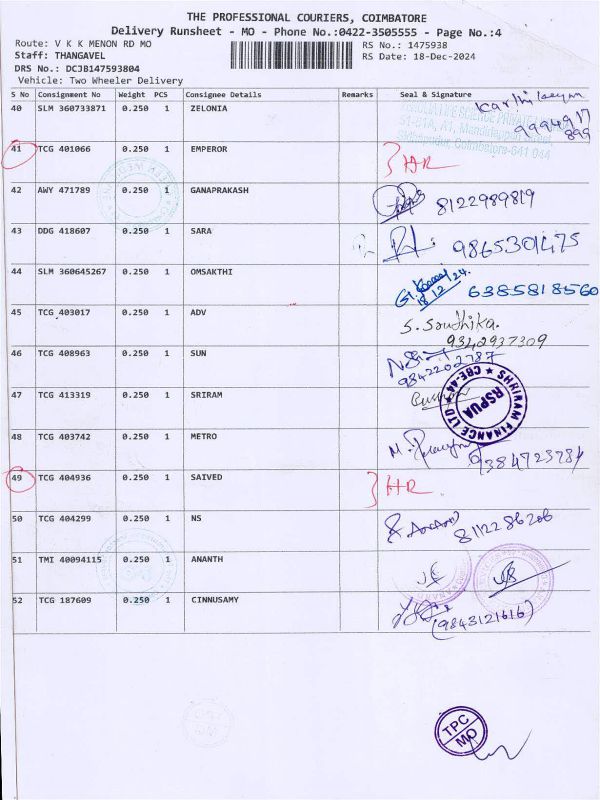 THE PROFESSIONAL COURIERS, COIMBATORE
Delivery Runsheet - MO - Phone No.:0422-3505555 - Page No.:4
Route: V K K MENON RD MO RS No.: 1475938
Staff: THANGAVEL RS Date: 18-Dec-2024
DRS No.: DCJB147593804
Vehicle: Two Wheeler Delivery
S No Consignment No Weight PCS Consignee Details Remarks Seal & Signature
40 SLM 360733871 0.250 1 ZELONIA
41 TCG 401066 0.250 1 EMPEROR HR
42 AWY 471789 0.250 1 GANAPRAKASH 8122989819
43 DDG 418607 0.250 1 SARA 9865301475
44 SLM 360645267 0.250 1 OMSAKTHI 18/12/24. 6385818560
45 TCG 403017 0.250 1 ADV S. Sandhika.
9342937309
46 TCG 408963 0.250 1 SUN 9342202787
47 TCG 413319 0.250 1 SRIRAM SHRIRAM FINANCE LTD ★ CBE-44 ★ RSPUA
48 TCG 403742 0.250 1 METRO 9384723784
49 TCG 404936 0.250 1 SAIVED HR
50 TCG 404299 0.250 1 NS 8112286206
51 TMI 40094115 0.250 1 ANANTH
52 TCG 187609 0.250 1 CINNUSAMY (9843121616)
TPC
MO